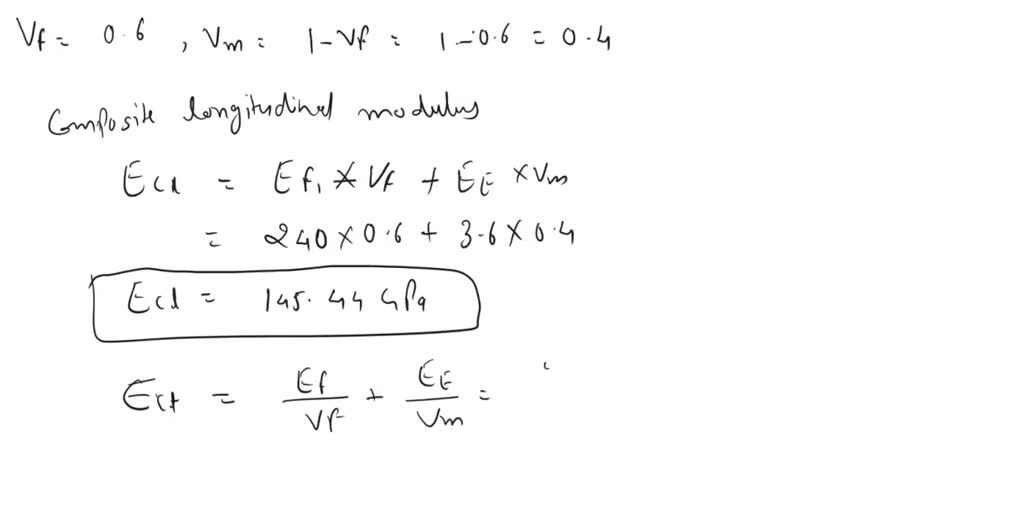 Vf = 0.6 , Vm = 1 - Vf = 1 - 0.6 = 0.4
Composite longitudinal modulus
Ecl = Ef1 × Vf + EE × Vm
= 240 × 0.6 + 3.6 × 0.4
Ecl = 145.44 GPa
Ect = Ef/Vf + EE/Vm =